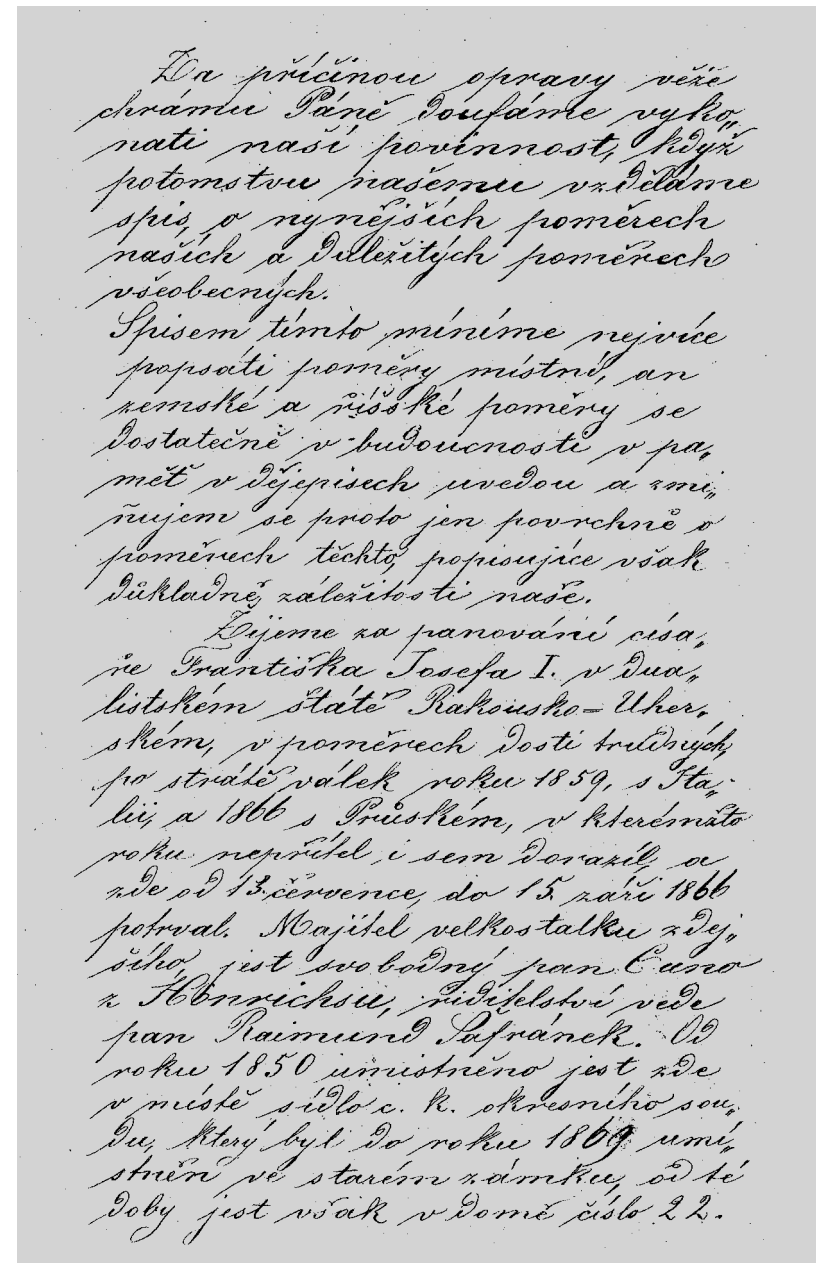 Za příčinou opravy věže
chrámu Páně doufáme vyko„
nati naší povinnost, když
potomstvu našemu vzděláme
spis, o nynějších poměrech
našich a důležitých poměrech
všeobecných.
Spisem tímto míníme nejvíce
popsati poměry místní, an
zemské a říšské poměry se
dostatečně v budoucnosti v pa„
mět v dějepisech uvedou a zmi„
ňujem se proto jen povrchně o
poměrech těchto, popisujíce však
důkladně, záležitosti naše.
Žijeme za panování císa„
ře Františka Josefa I. v dua„
listském státě Rakousko=Uher„
ském, v poměrech dosti trudných,
po strátě válek roku 1859, s Ita„
lií, a 1866 s Průském, v kterémžto
roku nepřítel i sem dorazil, a
zde od 13. července, do 15. září 1866
potrval. Majitel velkostatku zdej„
šího, jest svobodný pan Cuno
z Hönrichsu, řiditelství vede
pan Raimund Šafránek. Od
roku 1850 umístněno jest zde
v místě sídlo c. k. okresního sou„
du, který byl do roku 1869 umí„
stněn ve starém zámku, od té
doby jest však v domě číslo 22.